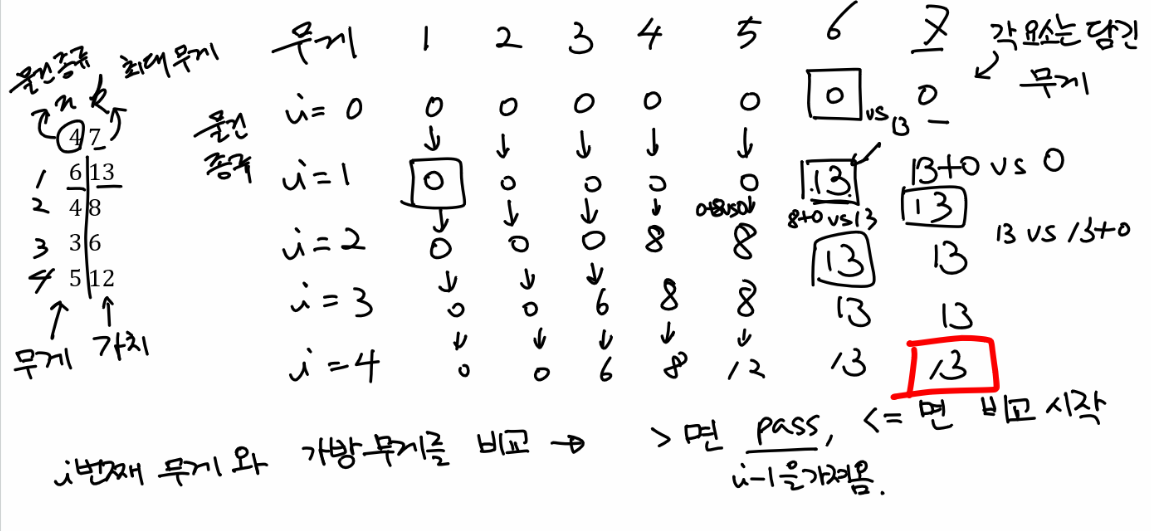 물건 종류 최대 무게
n k
4 7
1 6 13
2 4 8
3 3 6
4 5 12
무게 가치
무게 1 2 3 4 5 6 7
각 요소는 담긴
무게
물건
종류
i=0 0 0 0 0 0 0 0
vs 13
i=1 0 0 0 0 0 13 13+0 vs 0
13
0+8 vs 0 8+0 vs 13
13 vs 13+0
i=2 0 0 0 8 8 13 13
i=3 0 0 6 8 8 13 13
i=4 0 0 6 8 12 13 13
i번째 무게와 가방무게를 비교 → > 면 pass, <= 면 비교 시작
i-1을 가져옴.